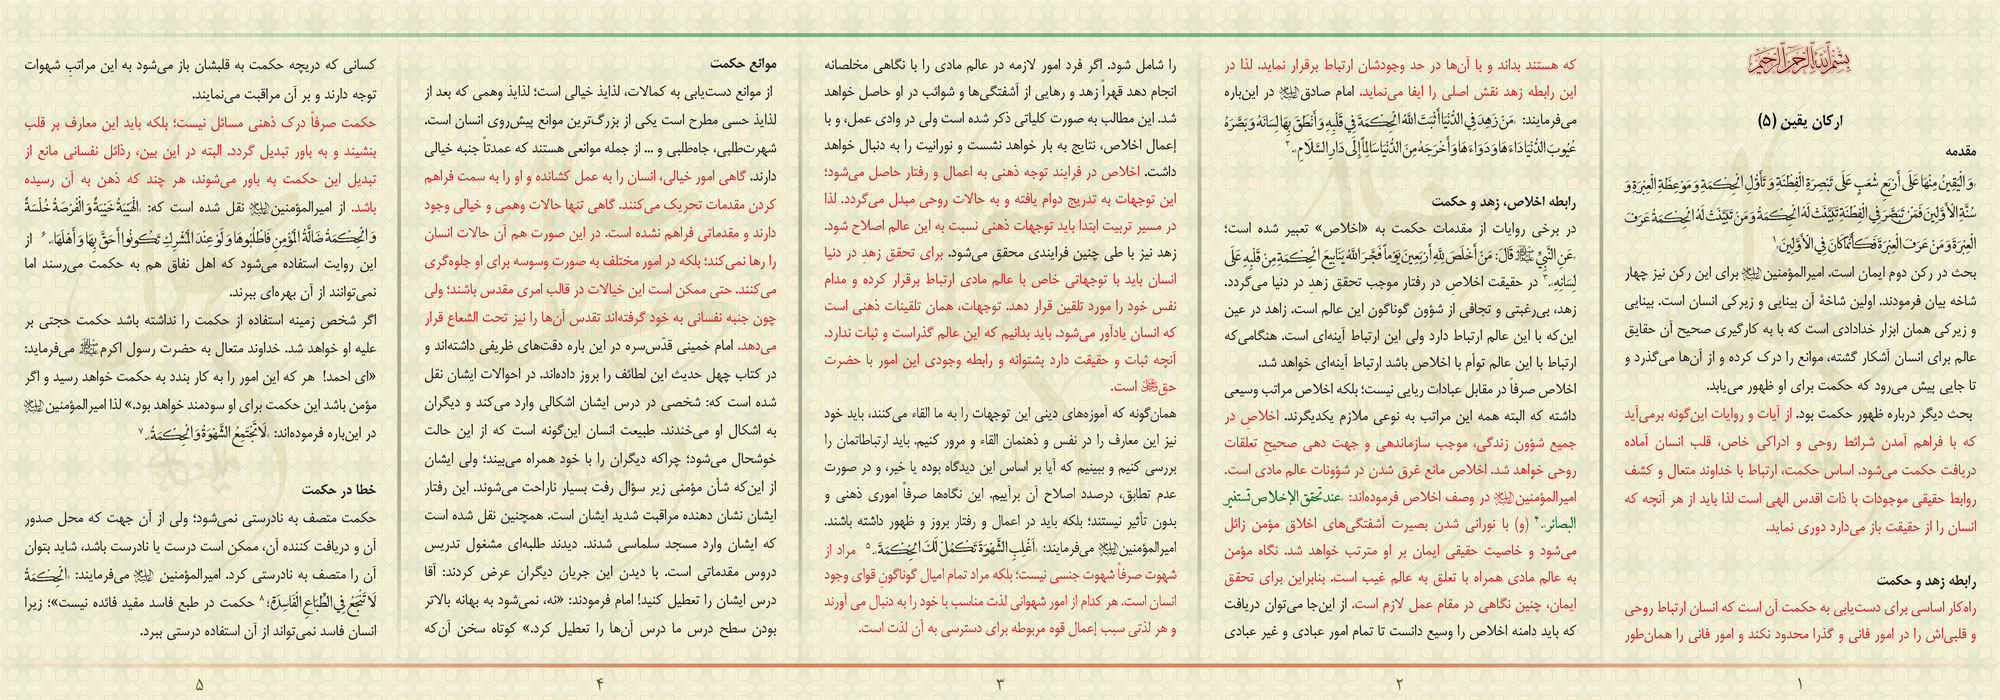 بِسْمِ اللهِ الرَّحْمنِ الرَّحِيمِ
ارکان یقین (۵)
مقدمه
«وَ الْيَقِينُ مِنْهَا عَلَى أَرْبَعِ شُعَبٍ عَلَى تَبْصِرَةِ الْفِطْنَةِ وَ تَأَوُّلِ الْحِكْمَةِ وَ مَوْعِظَةِ الْعِبْرَةِ وَ
سُنَّةِ الْأَوَّلِينَ فَمَنْ تَبَصَّرَ فِي الْفِطْنَةِ تَبَيَّنَتْ لَهُ الْحِكْمَةُ وَ مَنْ تَبَيَّنَتْ لَهُ الْحِكْمَةُ عَرَفَ
الْعِبْرَةَ وَ مَنْ عَرَفَ الْعِبْرَةَ فَكَأَنَّمَا كَانَ فِي الْأَوَّلِينَ.»۱
بحث در رکن دوم ایمان است. امیرالمؤمنین برای این رکن نیز چهار
شاخه بیان فرمودند. اولین شاخهٔ آن بینایی و زیرکی انسان است. بینایی
و زیرکی همان ابزار خدادادی است که با به کارگیری صحیح آن حقایق
عالم برای انسان آشکار گشته، موانع را درک کرده و از آن‌ها می‌گذرد و
تا جایی پیش می‌رود که حکمت برای او ظهور می‌یابد.
بحث دیگر درباره ظهور حکمت بود. از آیات و روایات این‌گونه برمی‌آید
که با فراهم آمدن شرائط روحی و ادراکی خاص، قلب انسان آماده
دریافت حکمت می‌شود. اساس حکمت، ارتباط با خداوند متعال و کشف
روابط حقیقی موجودات با ذات اقدس الهی است لذا باید از هر آنچه که
انسان را از حقیقت باز می‌دارد دوری نماید.
رابطه زهد و حکمت
راه‌کار اساسی برای دست‌یابی به حکمت آن است که انسان ارتباط روحی
و قلبی‌اش را در امور فانی و گذرا محدود نکند و امور فانی را همان‌طور
۱
که هستند بداند و با آن‌ها در حد وجودشان ارتباط برقرار نماید. لذا در
این رابطه زهد نقش اصلی را ایفا می‌نماید. امام صادق در این‌باره
می‌فرمایند: «مَنْ زَهِدَ فِي الدُّنْيَا أَثْبَتَ اللَّهُ الْحِكْمَةَ فِي قَلْبِهِ وَ أَنْطَقَ بِهَا لِسَانَهُ وَ بَصَّرَهُ
عُيُوبَ الدُّنْيَا دَاءَهَا وَ دَوَاءَهَا وَ أَخْرَجَهُ مِنَ الدُّنْيَا سَالِماً إِلَى دَارِ السَّلَامِ.»۲
رابطه اخلاص، زهد و حکمت
در برخی روایات از مقدمات حکمت به «اخلاص» تعبیر شده است؛
«عَنِ النَّبِيِّ قَالَ: مَنْ أَخْلَصَ لِلَّهِ أَرْبَعِينَ يَوْماً فَجَّرَ اللَّهُ يَنَابِيعَ الْحِكْمَةِ مِنْ قَلْبِهِ عَلَى
لِسَانِهِ.»۳ در حقیقت اخلاصِ در رفتار موجب تحقق زهدِ در دنیا می‌گردد.
زهد، بی‌رغبتی و تجافی از شؤون گوناگون این عالم است. زاهد در عین
این‌که با این عالم ارتباط دارد ولی این ارتباط آینه‌ای است. هنگامی‌که
ارتباط با این عالم توأم با اخلاص باشد ارتباط آینه‌ای خواهد شد.
اخلاص صرفاً در مقابل عبادات ریایی نیست؛ بلکه اخلاص مراتب وسیعی
داشته که البته همه این مراتب به نوعی ملازم یکدیگرند. اخلاصِ در
جمیع شؤون زندگی، موجب سازماندهی و جهت دهی صحیح تعلقات
روحی خواهد شد. اخلاص مانع غرق شدن در شؤونات عالم مادی است.
امیرالمؤمنین در وصف اخلاص فرموده‌اند: «عند تحقق الإخلاص تستنیر
البصائر.»۴ (و) با نورانی شدن بصیرت آشفتگی‌های اخلاق مؤمن زائل
می‌شود و خاصیت حقیقی ایمان بر او مترتب خواهد شد. نگاه مؤمن
به عالم مادی همراه با تعلق به عالم غیب است. بنابراین برای تحقق
ایمان، چنین نگاهی در مقام عمل لازم است. از این‌جا می‌توان دریافت
که باید دامنه اخلاص را وسیع دانست تا تمام امور عبادی و غیر عبادی
۲
را شامل شود. اگر فرد امور لازمه در عالم مادی را با نگاهی مخلصانه
انجام دهد قهراً زهد و رهایی از آشفتگی‌ها و شوائب در او حاصل خواهد
شد. این مطالب به صورت کلیاتی ذکر شده است ولی در وادی عمل، و با
إعمال اخلاص، نتایج به بار خواهد نشست و نورانیت را به دنبال خواهد
داشت. اخلاص در فرایند توجه ذهنی به اعمال و رفتار حاصل می‌شود؛
این توجهات به تدریج دوام یافته و به حالات روحی مبدل می‌گردد. لذا
در مسیر تربیت ابتدا باید توجهات ذهنی نسبت به این عالم اصلاح شود.
زهد نیز با طی چنین فرایندی محقق می‌شود. برای تحقق زهدِ در دنیا
انسان باید با توجهاتی خاص با عالم مادی ارتباط برقرار کرده و مدام
نفس خود را مورد تلقین قرار دهد. توجهات، همان تلقینات ذهنی است
که انسان یادآور می‌شود. باید بدانیم که این عالم گذراست و ثبات ندارد.
آنچه ثبات و حقیقت دارد پشتوانه و رابطه وجودی این امور با حضرت
حق است.
همان‌گونه که آموزه‌های دینی این توجهات را به ما القاء می‌کنند، باید خود
نیز این معارف را در نفس و ذهنمان القاء و مرور کنیم. باید ارتباطاتمان را
بررسی کنیم و ببینیم که آیا بر اساس این دیدگاه بوده یا خیر، و در صورت
عدم تطابق، درصدد اصلاح آن برآییم. این نگاه‌ها صرفاً اموری ذهنی و
بدون تأثیر نیستند؛ بلکه باید در اعمال و رفتار بروز و ظهور داشته باشند.
امیرالمؤمنین می‌فرمایند: «اَغْلِبِ الشَّهْوَةَ تَكْمُلْ لَكَ الْحِكْمَةُ.»۵ مراد از
شهوت صرفاً شهوت جنسی نیست؛ بلکه مراد تمام امیال گوناگونِ قوای وجود
انسان است. هر کدام از امور شهوانی لذت مناسب با خود را به دنبال می آورند
و هر لذتی سبب إعمال قوه مربوطه برای دسترسی به آن لذت است.
۳
موانع حکمت
از موانع دست‌یابی به کمالات، لذایذ خیالی است؛ لذایذ وهمی که بعد از
لذایذ حسی مطرح است یکی از بزرگ‌ترین موانع پیش‌روی انسان است.
شهرت‌طلبی، جاه‌طلبی و ... از جمله موانعی هستند که عمدتاً جنبه خیالی
دارند. گاهی امور خیالی، انسان را به عمل کشانده و او را به سمت فراهم
کردن مقدمات تحریک می‌کنند. گاهی تنها حالات وهمی و خیالی وجود
دارند و مقدماتی فراهم نشده است. در این صورت هم آن حالات انسان
را رها نمی‌کند؛ بلکه در امور مختلف به صورت وسوسه برای او جلوه‌گری
می‌کنند. حتی ممکن است این خیالات در قالب امری مقدس باشند؛ ولی
چون جنبه نفسانی به خود گرفته‌اند تقدس آن‌ها را نیز تحت الشعاع قرار
می‌دهد. امام خمینی قدّس‌سره در این باره دقت‌های ظریفی داشته‌اند و
در کتاب چهل حدیث این لطائف را بروز داده‌اند. در احوالات ایشان نقل
شده است که: شخصی در درس ایشان اشکالی وارد می‌کند و دیگران
به اشکال او می‌خندند. طبیعت انسان این‌گونه است که از این حالت
خوشحال می‌شود؛ چراکه دیگران را با خود همراه می‌بیند؛ ولی ایشان
از این‌که شأن مؤمنی زیر سؤال رفت بسیار ناراحت می‌شوند. این رفتار
ایشان نشان دهنده مراقبت شدید ایشان است. همچنین نقل شده است
که ایشان وارد مسجد سلماسی شدند. دیدند طلبه‌ای مشغول تدریس
دروس مقدماتی است. با دیدن این جریان دیگران عرض کردند: آقا
درس ایشان را تعطیل کنید! امام فرمودند: «نه، نمی‌شود به بهانه بالاتر
بودن سطح درس ما درس آن‌ها را تعطیل کرد.» کوتاه سخن آن‌که
۴
کسانی که دریچه حکمت به قلبشان باز می‌شود به این مراتبِ شهوات
توجه دارند و بر آن مراقبت می‌نمایند.
حکمت صرفاً درک ذهنی مسائل نیست؛ بلکه باید این معارف بر قلب
بنشیند و به باور تبدیل گردد. البته در این بین، رذائل نفسانی مانع از
تبدیل این حکمت به باور می‌شوند، هر چند که ذهن به آن رسیده
باشد. از امیرالمؤمنین نقل شده است که: «الْهَيْبَةُ خَيْبَةٌ وَ الْفُرْصَةُ خُلْسَةٌ
وَ الْحِكْمَةُ ضَالَّةُ الْمُؤْمِنِ فَاطْلُبُوهَا وَ لَوْ عِنْدَ الْمُشْرِكِ تَكُونُوا أَحَقَّ بِهَا وَ أَهْلَهَا.»۶ از
این روایت استفاده می‌شود که اهل نفاق هم به حکمت می‌رسند اما
نمی‌توانند از آن بهره‌ای ببرند.
اگر شخص زمینه استفاده از حکمت را نداشته باشد حکمت حجتی بر
علیه او خواهد شد. خداوند متعال به حضرت رسول اکرم می‌فرماید:
«ای احمد! هر که این امور را به کار بندد به حکمت خواهد رسید و اگر
مؤمن باشد این حکمت برای او سودمند خواهد بود.» لذا امیرالمؤمنین
در این‌باره فرموده‌اند: «لَا تَجْتَمِعُ الشَّهْوَةُ وَ الْحِكْمَةُ.»۷
خطا در حکمت
حکمت متصف به نادرستی نمی‌شود؛ ولی از آن جهت که محل صدور
آن و دریافت کننده آن، ممکن است درست یا نادرست باشد، شاید بتوان
آن را متصف به نادرستی کرد. امیرالمؤمنین می‌فرمایند: «الْحِكْمَةُ
لَا تَنْجَعُ فِي الطِّبَاعِ الْفَاسِدَةِ؛۸ حکمت در طبع فاسد مفید فائده نیست»؛ زیرا
انسان فاسد نمی‌تواند از آن استفاده درستی ببرد.
۵